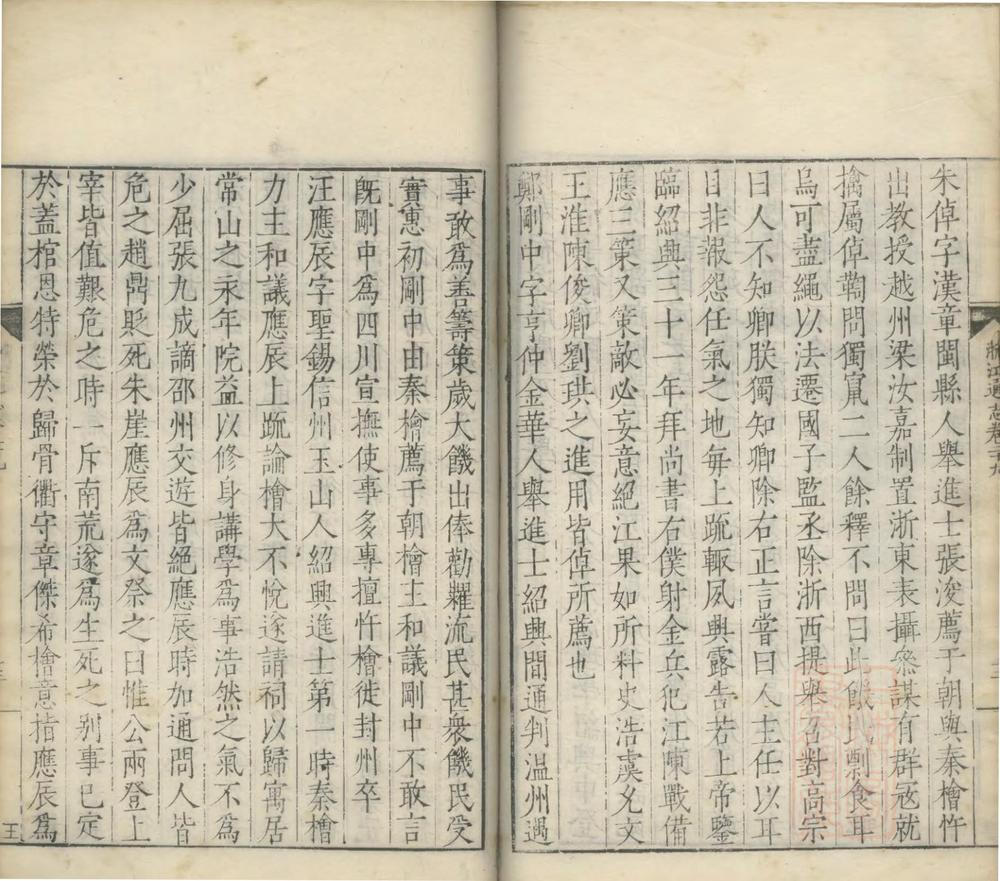 朱倬字漢章閩縣人舉進士張浚薦于朝與秦檜忤
出教授越州梁汝嘉制置浙東表攝叅謀有群寇就
擒屬倬鞫問獨竄二人餘釋不問曰此饑民剽食耳
烏可盡繩以法遷國子監丞除浙西提舉召對高宗
曰人不知卿朕獨知卿除右正言嘗曰人主任以耳
目非報怨任氣之地每上䟽輒夙興露告若上帝鑒
臨紹興三十一年拜尚書右僕射金兵犯江陳戰備
應三策又策敵必妄意絕江果如所料史浩虞允文
王淮陳俊卿劉珙之進用皆倬所薦也
鄭剛中字亨仲金華人舉進士紹興間通判温州遇
浙江通志卷二十九
三
事敢爲善籌策歲大饑出俸勸糶流民甚衆饑民受
實惠初剛中由秦檜薦于朝檜主和議剛中不敢言
旣剛中爲四川宣撫使事多專擅忤檜徙封州卒
汪應辰字聖錫信州玉山人紹興進士第一時秦檜
力主和議應辰上䟽論檜大不悅遂請祠以歸寓居
常山之永年院益以修身講學爲事浩然之氣不爲
少屈張九成謫邵州交遊皆絕應辰時加通問人皆
危之趙鼎貶死朱崖應辰爲文祭之曰惟公兩登上
宰皆值艱危之時一斥南荒遂爲生死之别事已定
於蓋棺恩特榮於歸骨衢守章傑希檜意指應辰爲